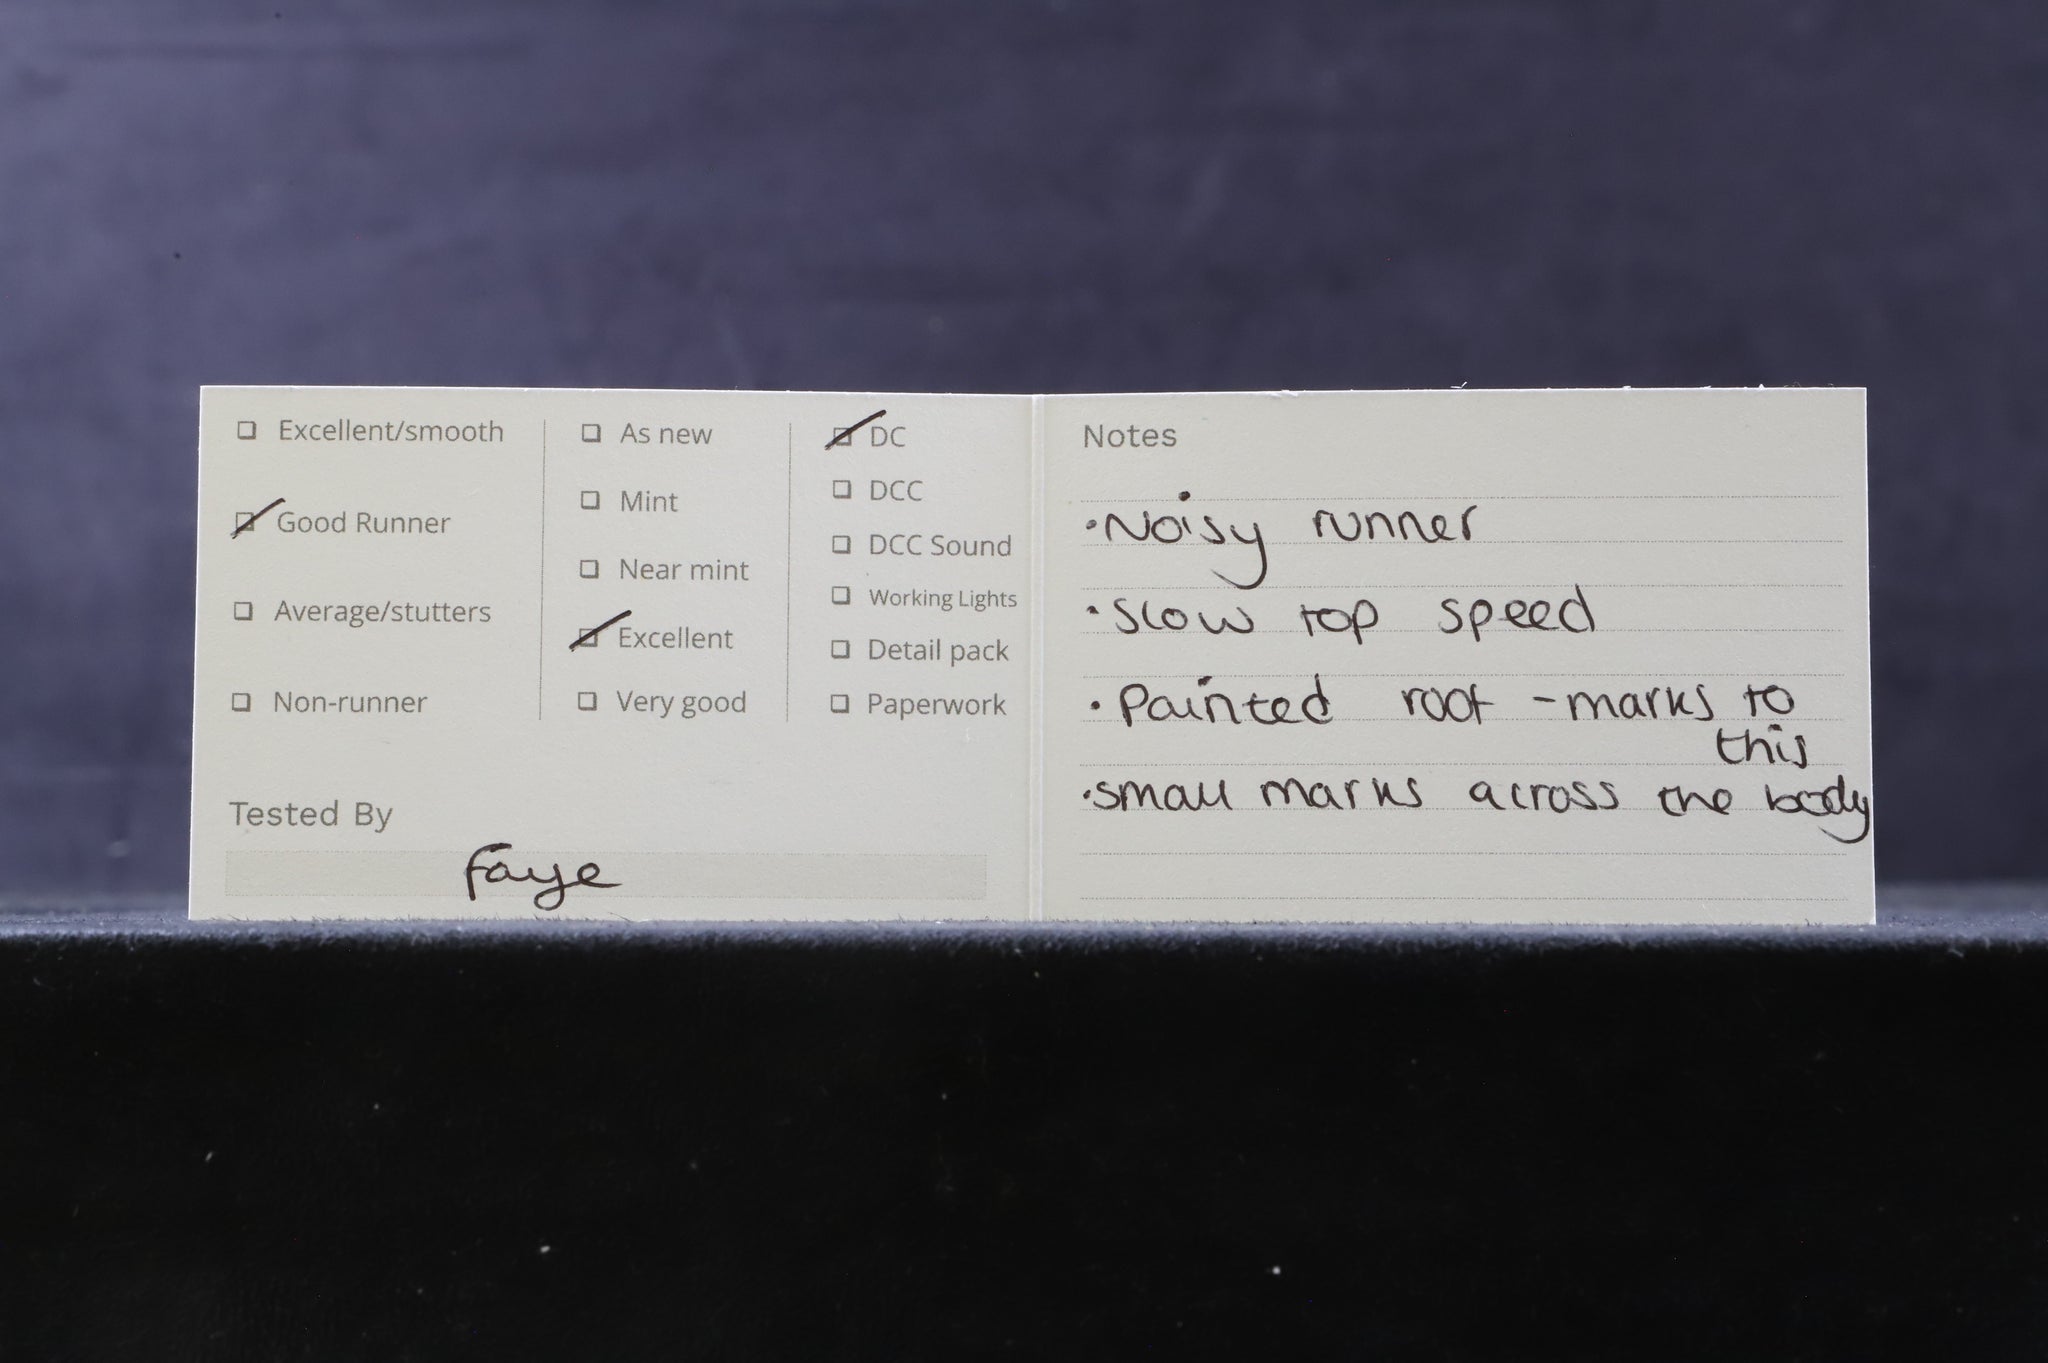 Excellent/smooth
Good Runner
Average/stutters
Non-runner
As new
Mint
Near mint
Excellent
Very good
DC
DCC
DCC Sound
Working Lights
Detail pack
Paperwork
Tested By
Faye
Notes
•Noisy runner
•Slow top speed
•Painted roof - marks to
this
•small marks across the body